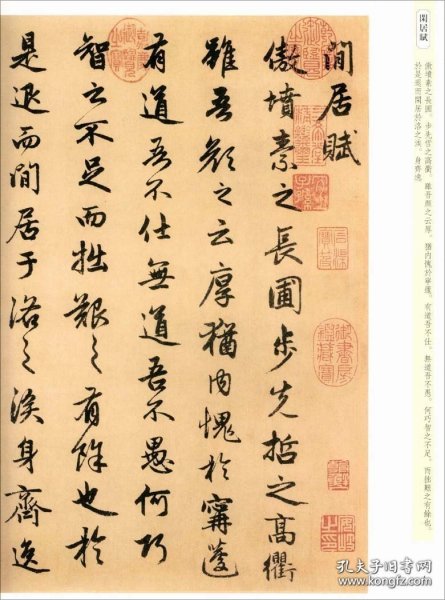 閑居賦
傲墳素之長圃。步先哲之高衢。雖吾顏之云厚。猶內愧於寧蘧。有道吾不仕。無道吾不愚。何巧智之不足。而拙艱之有餘也。
於是退而閒居於洛之涘。身齊逸
閒居賦
傲墳素之長圃步先哲之高衢
雖吾顏之云厚猶內愧於寗蘧
有道吾不仕無道吾不愚何巧
智之不足而拙艱之有餘也於
是退而閒居于洛之涘身齊逸
石渠寶笈
御書房鑑藏寶
孔夫子旧书网
www.kongfz.com